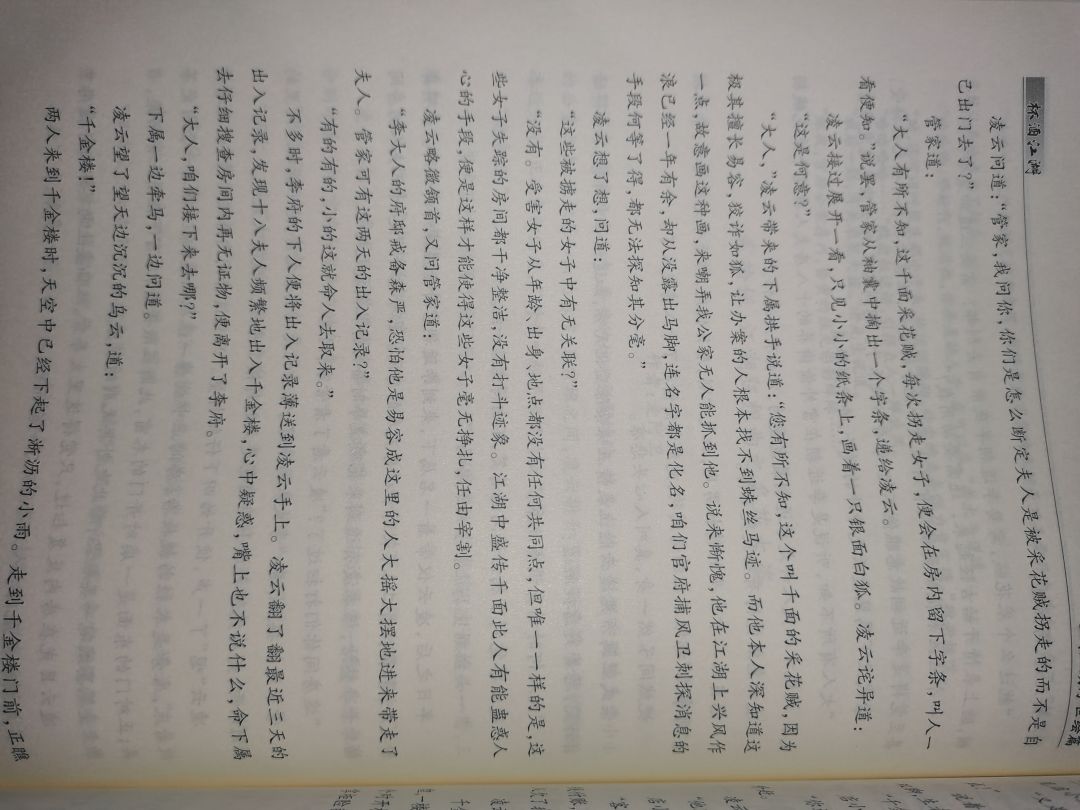 杯酒江湖
凌云问道：“管家，我问你，你们是怎么断定夫人是被采花贼拐走的而不是自
己出门去了？”
管家道：
“大人有所不知，这千面采花贼，每次拐走女子，便会在房内留下字条，叫人一
看便知。”说罢，管家从袖囊中掏出一个字条，递给凌云。
凌云接过展开一看，只见小小的纸条上，画着一只银面白狐。凌云诧异道：
“这是何意？”
“大人，”凌云带来的下属拱手说道：“您有所不知，这个叫千面的采花贼，因为
极其擅长易容，狡诈如狐，让办案的人根本找不到蛛丝马迹。而他本人深知道这
一点，故意画这种画，来嘲弄我公家无人能抓到他。说来惭愧，他在江湖上兴风作
浪已经一年有余，却从没露出马脚，连名字都是化名，咱们官府捕风卫刺探消息的
手段何等了得，都无法探知其分毫。”
凌云想了想，问道：
“这些被掳走的女子中有无关联？”
“没有。受害女子从年龄、出身、地点都没有任何共同点，但唯一一样的是，这
些女子失踪的房间都干净整洁，没有打斗迹象。江湖中盛传千面此人有能蛊惑人
心的手段，便是这样才能使得这些女子毫无挣扎，任由宰割。
凌云略微颔首，又问管家道：
“李大人的府邸戒备森严，恐怕他是易容成这里的人大摇大摆地进来带走了
夫人。管家可有这两天的出入记录？”
“有的有的，小的这就命人去取来。”
不多时，李府的下人便将出入记录薄送到凌云手上。凌云翻了翻最近三天的
出入记录，发现十八夫人频繁地出入千金楼，心中疑惑，嘴上也不说什么，命下属
去仔细搜查房间内再无证物，便离开了李府。
“大人，咱们接下来去哪？”
下属一边牵马，一边问道。
凌云望了望天边沉沉的乌云，道：
“千金楼！”
两人来到千金楼时，天空中已经下起了淅沥的小雨。走到千金楼门前，正瞧